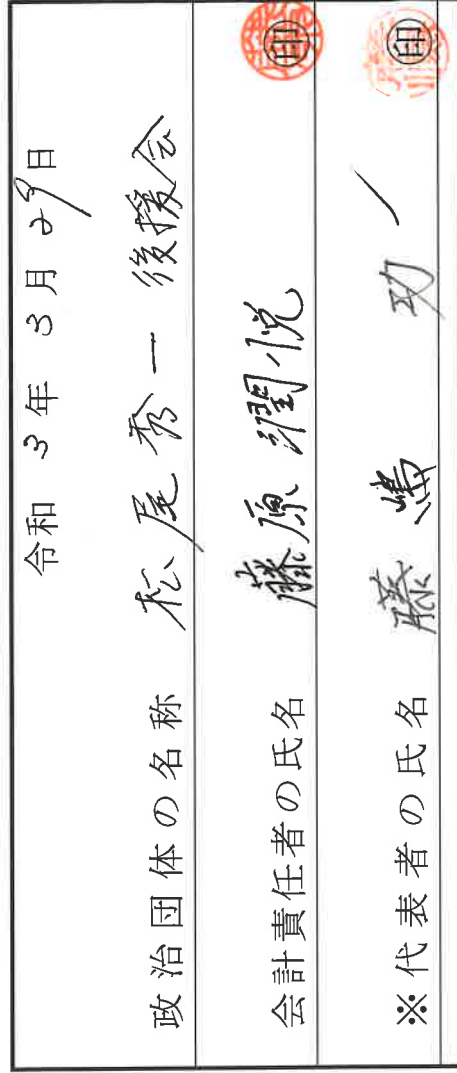 令和 3年 3月 29日
政治団体の名称 松尾秀一 後援会
会計責任者の氏名 藤原潤悦 印
※代表者の氏名 藤嶋 功一 印